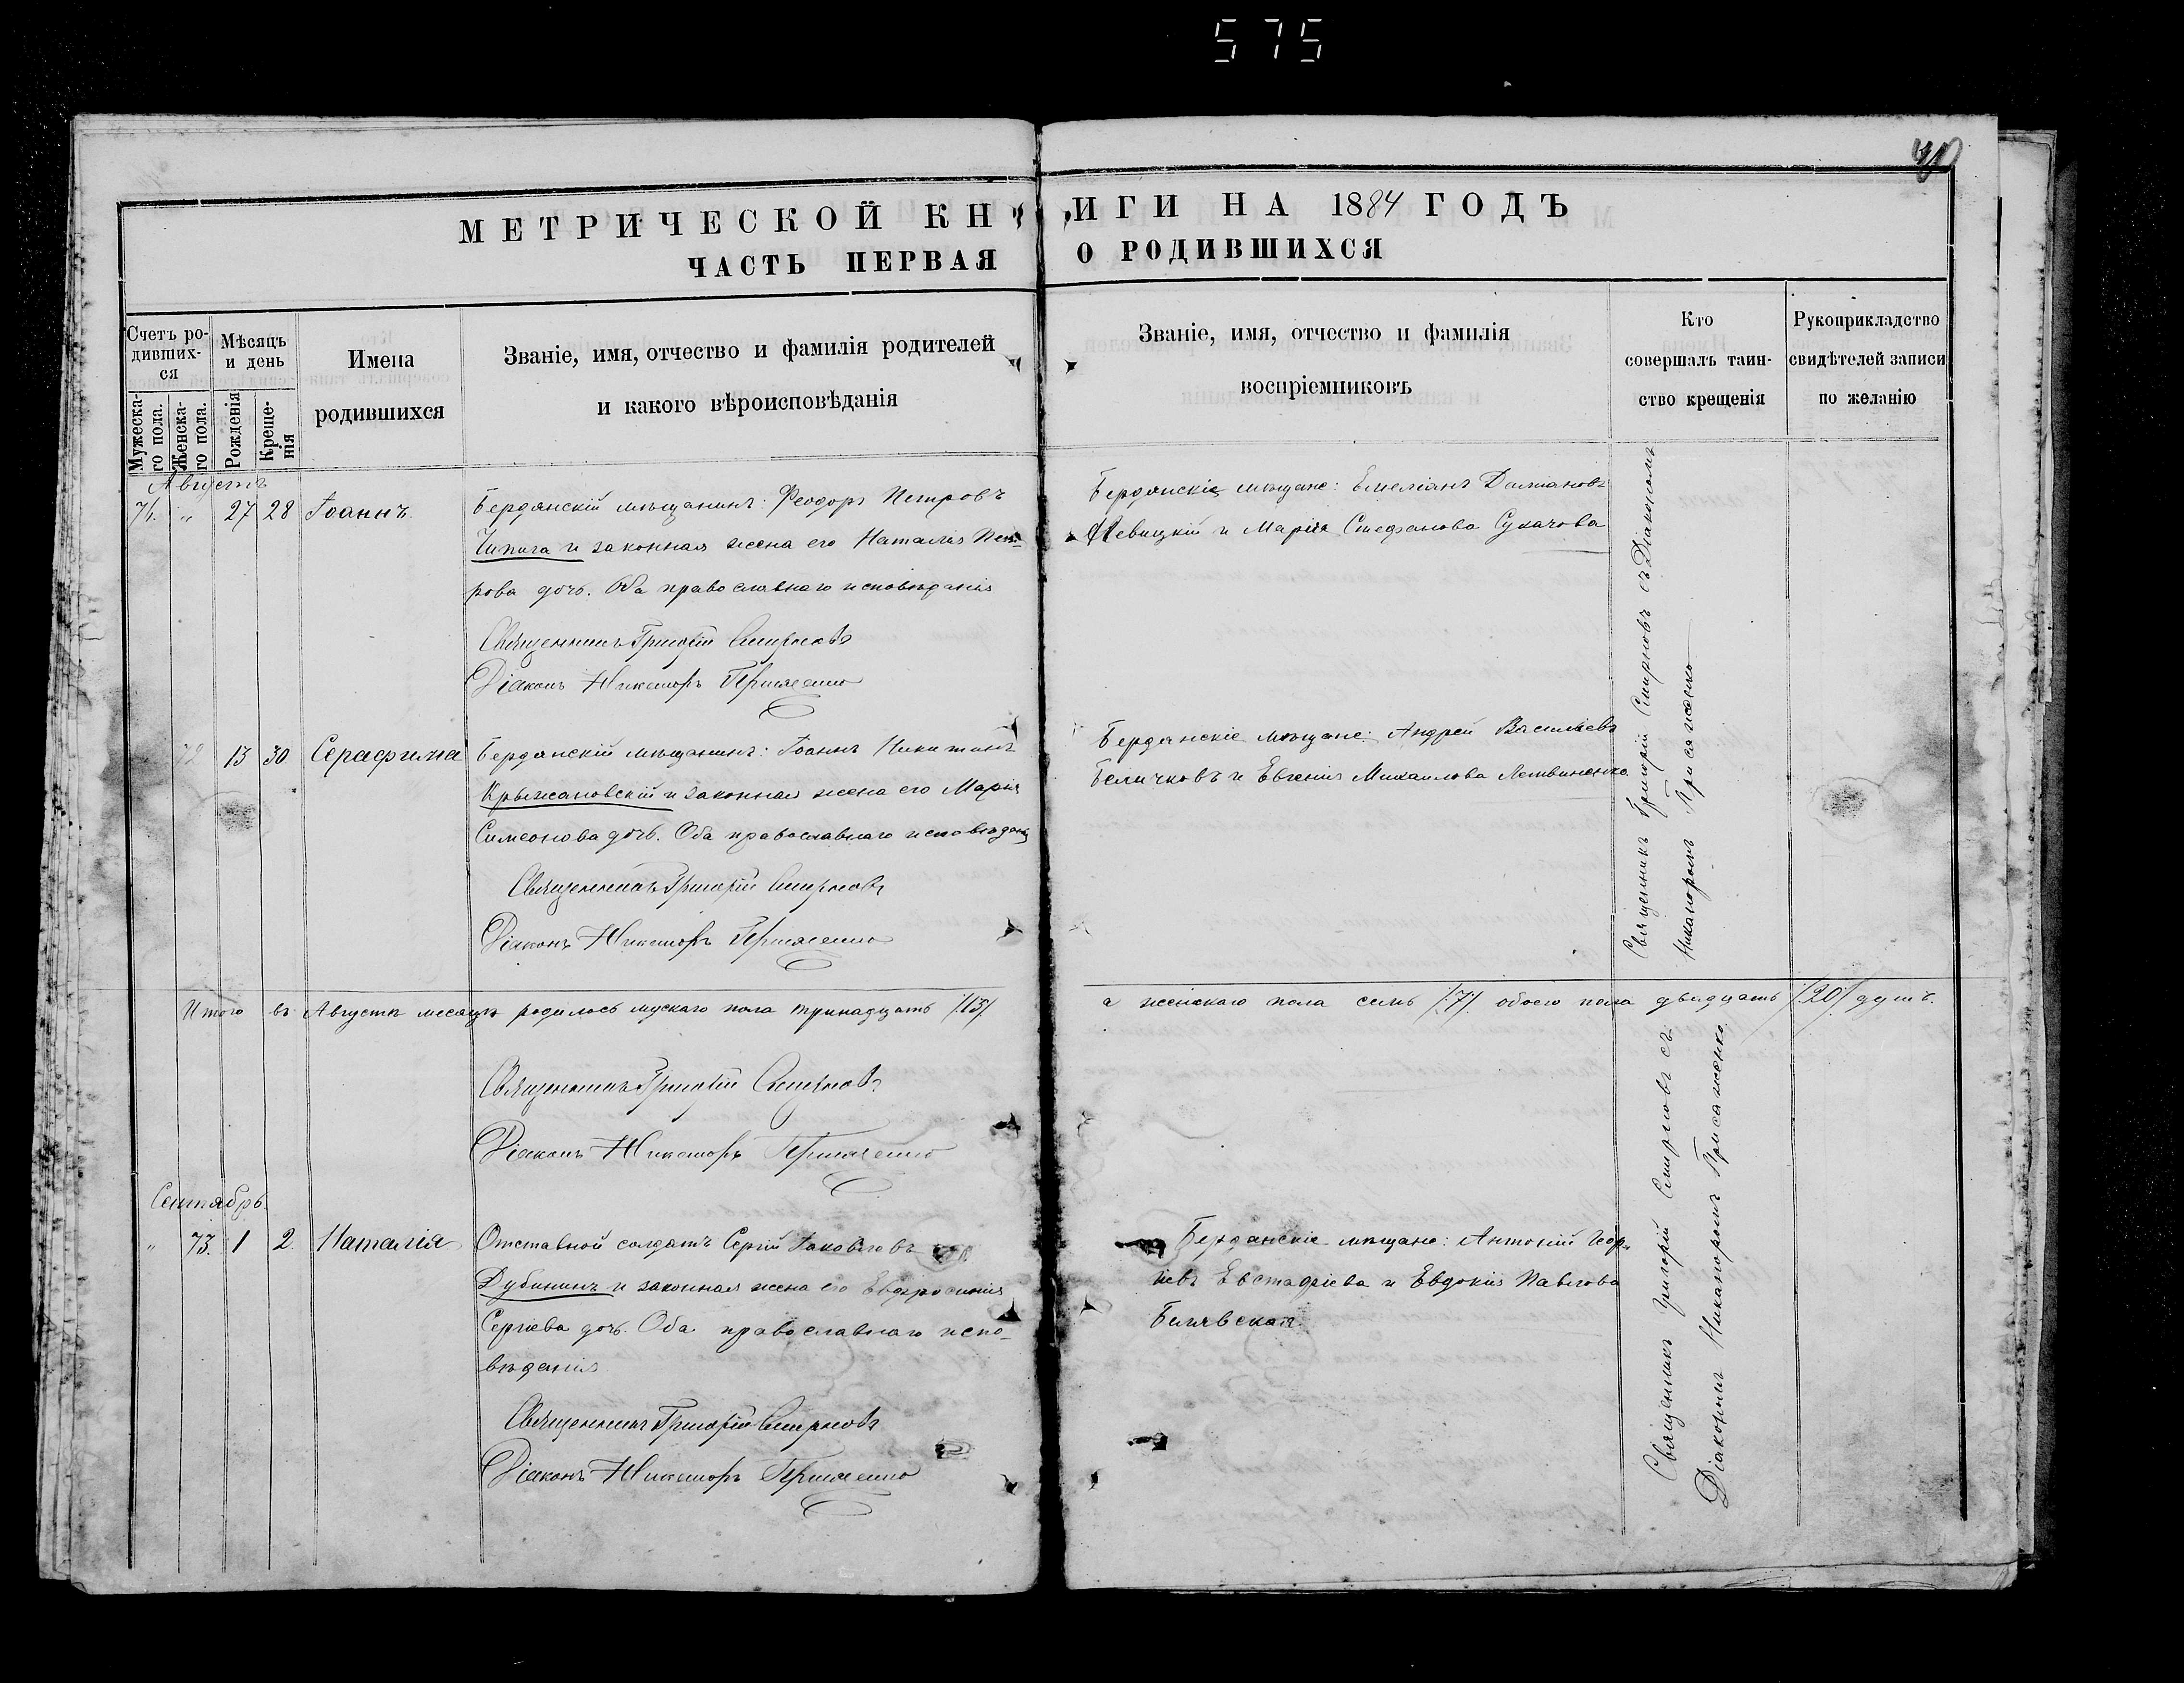 575
МЕТРИЧЕСКОЙ КНИГИ НА 1884 ГОДЪ
ЧАСТЬ ПЕРВАЯ О РОДИВШИХСЯ
Счетъ ро-
дивших-
ся
Мужеска-
го пола.
Женска-
го пола.
Мѣсяцъ
и день
Рожденія
Креще-
нія
Имена
родившихся
Званіе, имя, отчество и фамилія родителей
и какого вѣроисповѣданія
Званіе, имя, отчество и фамилія
воспріемниковъ
Кто
совершалъ таин-
ство крещенія
Рукоприкладство
свидѣтелей записи
по желанію
Августъ
71. " 27 28 Іоаннъ.
Бердянскій мѣщанинъ: Феодоръ Петровъ
Чипига и законная жена его Наталія Пет-
рова дочь. Оба православнаго исповѣданія
Священникъ Григорій Смирновъ
Діаконъ Никаноръ Присяженко
Бердянскіе мѣщане: Емеліанъ
Левицкій и Марія Стефанова Сукачова
Священникъ Григорій Смирновъ съ Діакономъ
Никаноромъ Присяженко
72 13 30 Серафима
Бердянскій мѣщанинъ: Іоаннъ Никитинъ
Крыжановскій и законная жена его Марія
Симеонова дочь. Оба православнаго исповѣданія
Священникъ Григорій Смирновъ
Діаконъ Никаноръ Присяженко
Бердянскіе мѣщане: Андрей Васильевъ
Беличковъ и Евгенія Михаилова Литвиненко.
Итого въ Августѣ месяцѣ родилось мускаго пола тринадцать /13/
а женскаго пола семь /7/ обоего пола двадцать /20/ душъ.
Священникъ Григорій Смирновъ
Діаконъ Никаноръ Присяженко
Сентябрь.
" 73. 1 2. Наталія
Отставной солдатъ Сергій Іаковлевъ
Дубининъ и законная жена его Евфросинія
Сергіева дочь. Оба православнаго испо-
вѣданія
Священникъ Григорій Смирновъ
Діаконъ Никаноръ Присяженко
Бердянскіе мѣщане: Антоній Геор-
іевъ Евстафіева и Евдокія Павлова
Билявская.
Священникъ Григорій Смирновъ съ
Діакономъ Никаноромъ Присяженко.